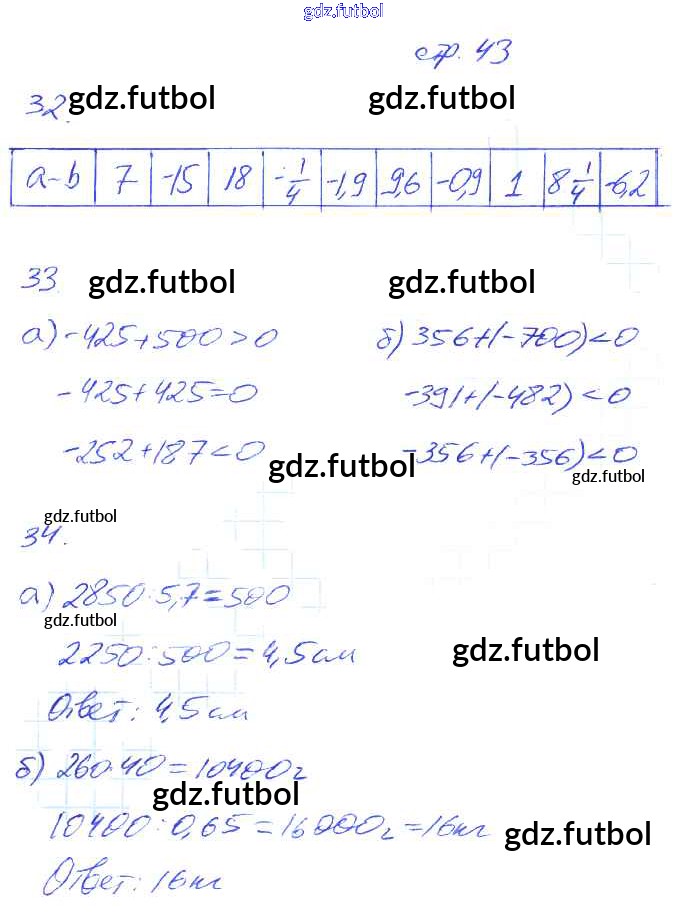 gdz.futbol
стр. 43
32. gdz.futbol gdz.futbol
a-b 7 -15 18 -1/4 -1,9 9,6 -0,9 1 8 1/4 -6,2
33. gdz.futbol gdz.futbol
а) -425+500>0 б) 356+(-700)<0
-425+425=0 -391+(-482)<0
-252+187<0 gdz.futbol -356+(-356)<0
gdz.futbol
gdz.futbol
34.
а) 2850:5,7=500
gdz.futbol
2250:500=4,5см gdz.futbol
Ответ: 4,5см
б) 260·40=10400г
gdz.futbol
10400:0,65=16000г=16кг gdz.futbol
Ответ: 16кг